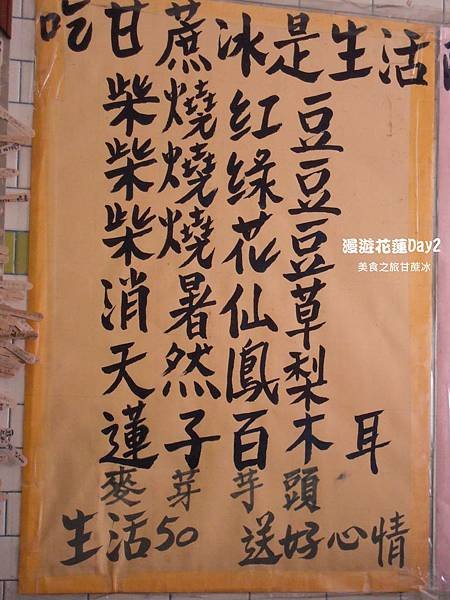 吃甘蔗冰是生活
柴燒紅豆
柴燒綠豆
柴燒花豆
消暑仙草
天然鳳梨
蓮子百木耳
麥芽芋頭
生活50 送好心情
漫遊花蓮Day2
美食之旅甘蔗冰